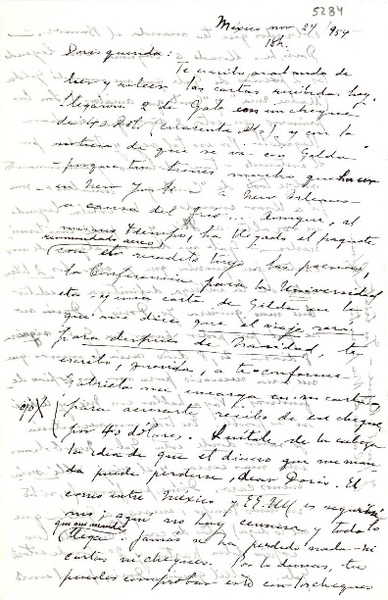 5284
México nov 24/954
18h.
Doris querida:
Te escribo acabando de
leer y releer las cartas recibidas hoy.
Llegaron 2 de Gate con un cheque
de 40 Dol. (cuarenta Dls) y con la
noticia de que se va con Gilda
-porque tu tienes mucho que hacer
en New York- a New Orleans
a causa del frío... Aunque, al
mismo tiempo, ha llegado el paquete
recomendado aéreo
con los poemas,
la Conferencia para la Universidad
etc. y una carta de Gilda en la
que me dice que el viaje será
para después de Navidad, te
escribo, querida, a te conforme
me encarga en su carta
ojo X para acusarte recibo de ese cheque
por 40 dólares. Quítate de la cabeza
la idea de que el dinero que me man-
da puede perderse, dear Doris. El
correo entre México y EE.UU. es segurísi-
mo; aquí no hay censura y todo lo
que me mandan
llega. Jamás se ha perdido nada-ni
cartas ni cheques. Por lo demás, tu
puedes comprobar esto con los cheques